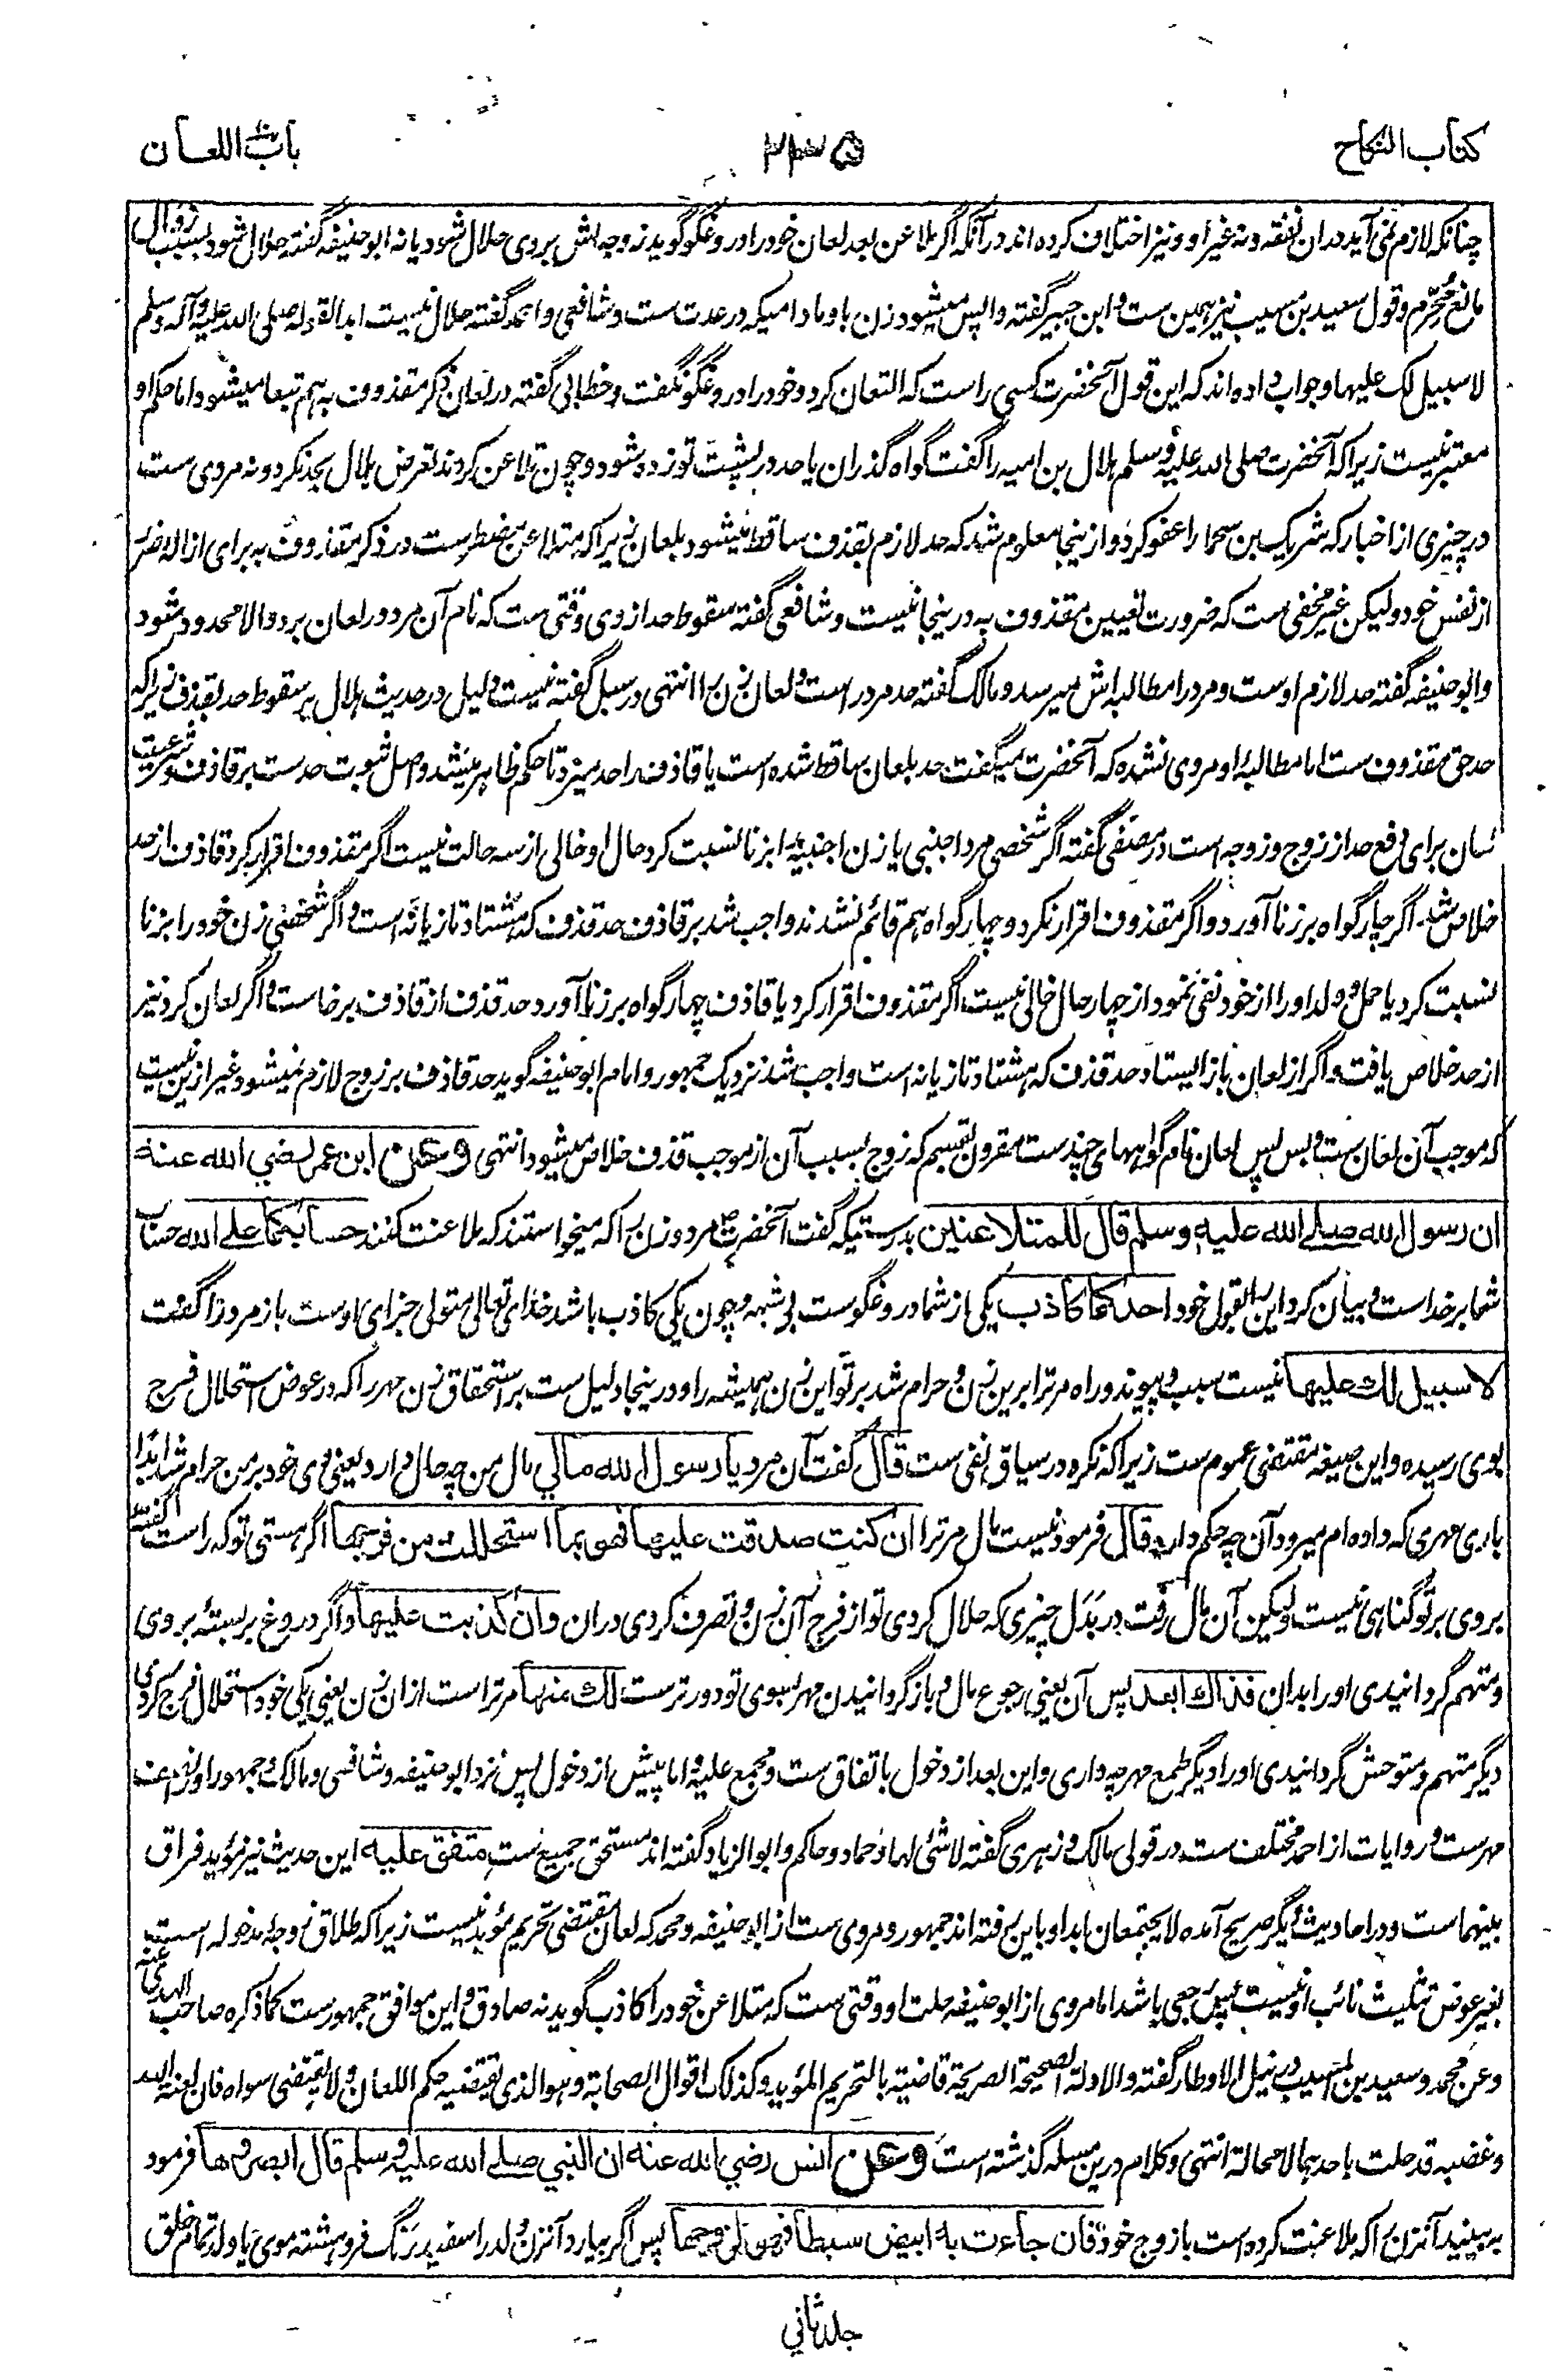 کتاب النکاح
۲۳۵
باب اللعان
چنانکہ لازم نمی آید دران نفقہ ونہ غیر او ونیز اختلاف کردہ اند در آنکہ اگر ملاعن بعد لعان خود را دروغگو گوید زوجہ اش بروی حلال شود یا نہ ابو حنیفہ گفتہ حلال شود بسبب زوال
مانع محرم وقول سعید بن مسیب نیز ہمین ست و ابن جبیر گفتہ واپس میشود زن باو مادامیکہ در عدت ست وشافعی واحمد گفتہ حلال نیست ابدا لقولہ صلی اللہ علیہ وآلہ وسلم
لا سبیل لک علیہا وجواب دادہ اند کہ این قول آنحضرت کسی راست کہ التعان کرد وخود را دروغگو نگفت وخطابی گفتہ در لعان ذکر مقذوف بہ ہم تبعا میشود اما حکم او
معتبر نیست زیرا کہ آنحضرت صلی اللہ علیہ وسلم ہلال بن امیہ را گفت گواہ گذران یا حد در پشت تو زدہ شود وچون تلاعن کردند تعرض ہلال بحد نکرد ونہ مروی ست
در چیزی از اخبار کہ شریک بن سحما را عفو کرد واز ینجا معلوم شد کہ حد لازم بقذف ساقط میشود بلعان زیرا کہ متلاعن مضطر ست در ذکر مقذوف بہ برای ازالہ ضرر
از نفس خود ولیکن غیر مخفی ست کہ ضرورت تعیین مقذوف بہ در ینجا نیست وشافعی گفتہ سقوط حد از وی وقتی ست کہ نام آن مرد در لعان برد والا محدود شود
وابو حنیفہ گفتہ حد لازم اوست ومرد را مطالبہ اش میرسد ومالک گفتہ حد مرد راست ولعان زن را انتہی در سبل گفتہ نیست دلیل در حدیث ہلال بر سقوط حد بقذف زیرا کہ
حد حق مقذوف ست اما مطالبۂ او مروی نشدہ کہ آنحضرت میگفت حد بلعان ساقط شدہ است یا قاذف را حد میزد تا حکم ظاہر میشد واصل ثبوت حدست بر قاذف وشرعیت
لسان برای دفع حد از زوج وزوجہ است در مصفی گفتہ اگر شخصی مرد اجنبی یا زن اجنبیہ را بزنا نسبت کرد حال او خالی از سہ حالت نیست اگر مقذوف اقرار کرد قاذف از حد
خلاص شد اگر چار گواہ بر زنا آورد و اگر مقذوف اقرار نکرد وچہار گواہ ہم قائم نشدند واجب شد بر قاذف حد قذف کہ ہشتاد تازیانہ است واگر شخصی زن خود را بزنا
نسبت کرد یا حمل وولد او را از خود نفی نمود از چہار حال خالی نیست اگر مقذوف اقرار کرد یا قاذف چہار گواہ بر زنا آورد حد قذف از قاذف برخاست واگر لعان کرد نیز
از حد خلاص یافت واگر از لعان باز ایستاد حد قذف کہ ہشتاد تازیانہ است واجب شد نزدیک جمہور وامام ابو حنیفہ گوید حد قاذف بر زوج لازم نمیشود غیر ازین نیست
کہ موجب آن لعان ست وبس پس لعان نام گواہیہای چندست مقرون بقسم کہ زوج بسبب آن از موجب قذف خلاص میشود انتہی وعن ابن عمر رضی اللہ عنہ
ان رسول اللہ صلے اللہ علیہ وسلم قال للمتلاعنین بدرستیکہ گفت آنحضرت مرد وزن را کہ میخواستند کہ ملاعنت کنند حسابکما علے اللہ حساب
شما بر خداست وبیان کرد این را بقول خود احدکما کاذب یکی از شما دروغگوست بی شبہہ وچون یکی کاذب باشد خدای تعالی متولی جزای اوست باز مرد را گفت
لا سبیل لک علیہا نیست سبب وپیوند وراہ مر ترا برین زن وحرام شد بر تو این زن ہمیشہ را ودر ینجا دلیل ست بر استحقاق زن مہر را کہ در عوض استحلال فرج
بوی رسیدہ واین صیغہ مقتضی عموم ست زیرا کہ نکرہ در سیاق نفی ست قال گفت آن مرد یا رسول اللہ مالی مال من چہ حال دارد یعنی وی خود بر من حرام شد ابدا
باری مہری کہ دادہ ام میرود آن چہ حکم دارد قال فرمود نیست مال مر ترا ان کنت صدقت علیہا فھو بما استحللت من فرجھا اگر ہستی تو کہ راست گفتۂ
بروی بر تو گناہی نیست ولیکن آن مال رفت در بدل چیزی کہ حلال کردی تو از فرج آن زن وتصرف کردی دران وان کذبت علیھا واگر دروغ بر بستۂ بروی
ومتہم گردانیدی او را بدان فذاک ابعد پس آن یعنی رجوع مال وبازگردانیدن مہر بسوی تو دور ترست لک منہا مر ترا ست از ان زن یعنی یکی خود استحلال فرج کردی
دیگر متہم ومتوحش گردانیدی او را دیگر طمع مہر چہ داری واین بعد از دخول باتفاق ست ومجمع علیہ واما پیش از دخول پس نزد ابو حنیفہ وشافعی ومالک وجمہور او را نصف
مہرست وروایات از احمد مختلف ست در قولی مالک وزہری گفتہ لا شئ لہا وحماد وحاکم وابو الزیاد گفتہ اند مستحق جمیع ست متفق علیہ این حدیث نیز مؤید فراق
بینہما است ودر احادیث دیگر صریح آمدہ لا یجتمعان ابدا وباین رفتہ اند جمہور ومروی ست از ابو حنیفہ ومحمد کہ لعان مقتضی تحریم مؤبد نیست زیرا کہ طلاق زوجہ مدخولہ است
بغیر عوض تثلیث نائب او نیست پس رجعی باشد اما مروی از ابو حنیفہ حلت او وقتی ست کہ متلاعن خود را کاذب گوید نہ صادق واین موافق جمہور ست کما ذکرہ صاحب الہدی عنہ
وعن محمد وسعید بن المسیب در نیل الاوطار گفتہ والادلۃ الصحیحۃ الصریحۃ قاضیۃ بالتحریم المؤبد وکذلک اقوال الصحابۃ وہو الذی یقتضیہ حکم اللعان ولا یقتضی سواہ فان لعنۃ اللہ
وغضبہ قد حلت باحدہما لا محالۃ انتہی وکلام درین مسئلہ گذشتہ است وعن انس رضی اللہ عنہ ان النبی صلے اللہ علیہ وسلم قال ابصروھا فرمود
بہ بینید آنزن را کہ ملاعنت کردہ است با زوج خود فان جاءت بہ ابیض سبطا فھو لزوجھا پس اگر بیارد آنزن ولد را سفید رنگ فروہشتہ موی یا ولد تمام خلق
جلد ثانی